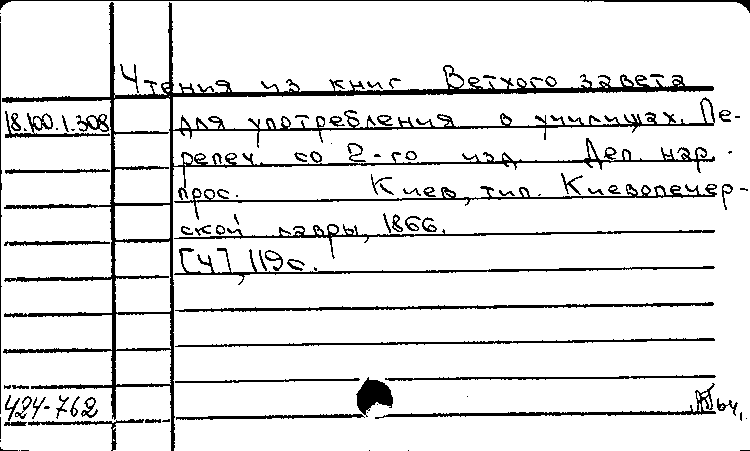 Чтения из книг Ветхого завета
18.100.1.308 для употребления в училищах. Пе-
репеч. со 2-го изд. Деп. нар.
прос. Киев, тип. Киевопечер-
ской лавры, 1866.
[4], 119с.
424-762 64,